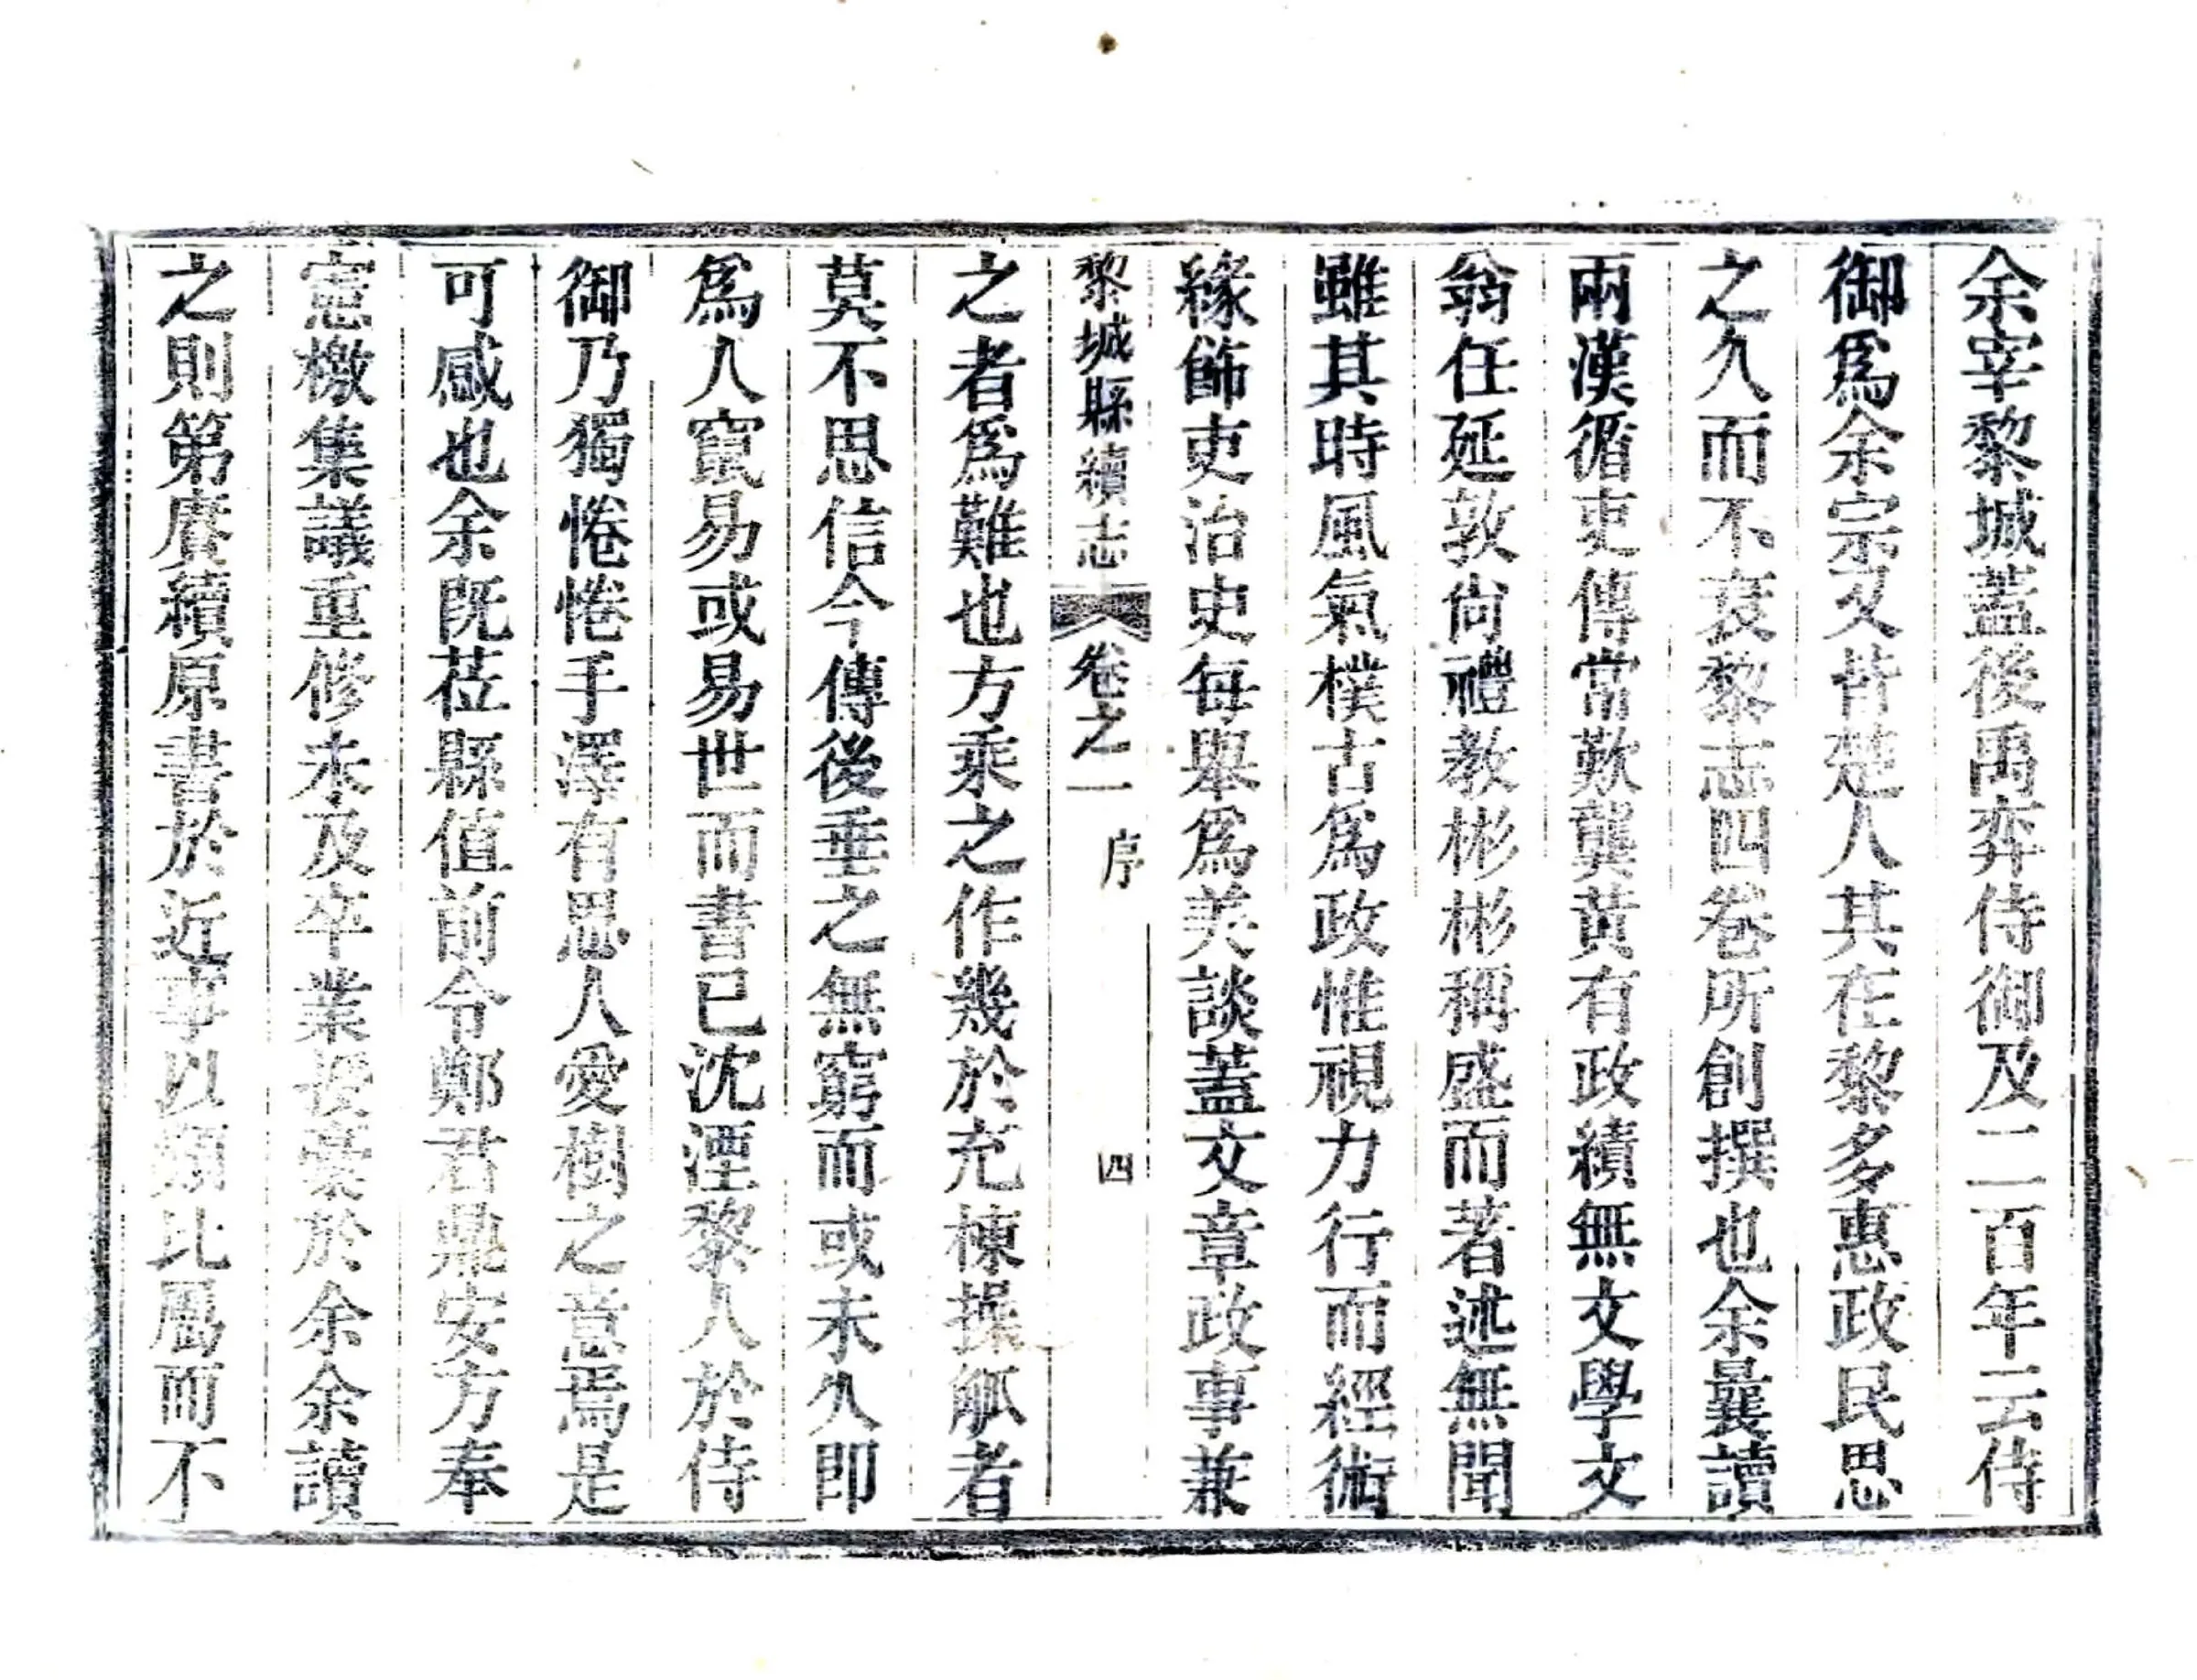 余宰黎城蓋後禹弈侍御及二百年云侍
御爲余宗又皆楚人其在黎多惠政民思
之久而不衰黎志四卷所創撰也余曩讀
兩漢循吏傳常歎龔黃有政績無文學文
翁任延敦尙禮教彬彬稱盛而著述無聞
雖其時風氣樸古爲政惟視力行而經術
緣飾吏治史每舉爲美談蓋文章政事兼
黎城縣續志 卷之一 序 四
之者爲難也方乘之作幾於充棟操觚者
莫不思信今傳後垂之無窮而或未久即
爲人竄易或易世而書已沈湮黎人於侍
御乃獨惓惓手澤有思人愛樹之意焉是
可感也余既莅縣值前令鄭君鼎安方奉
憲檄集議重修未及卒業授稾於余余讀
之則第賡續原書於近事以類比屬而不